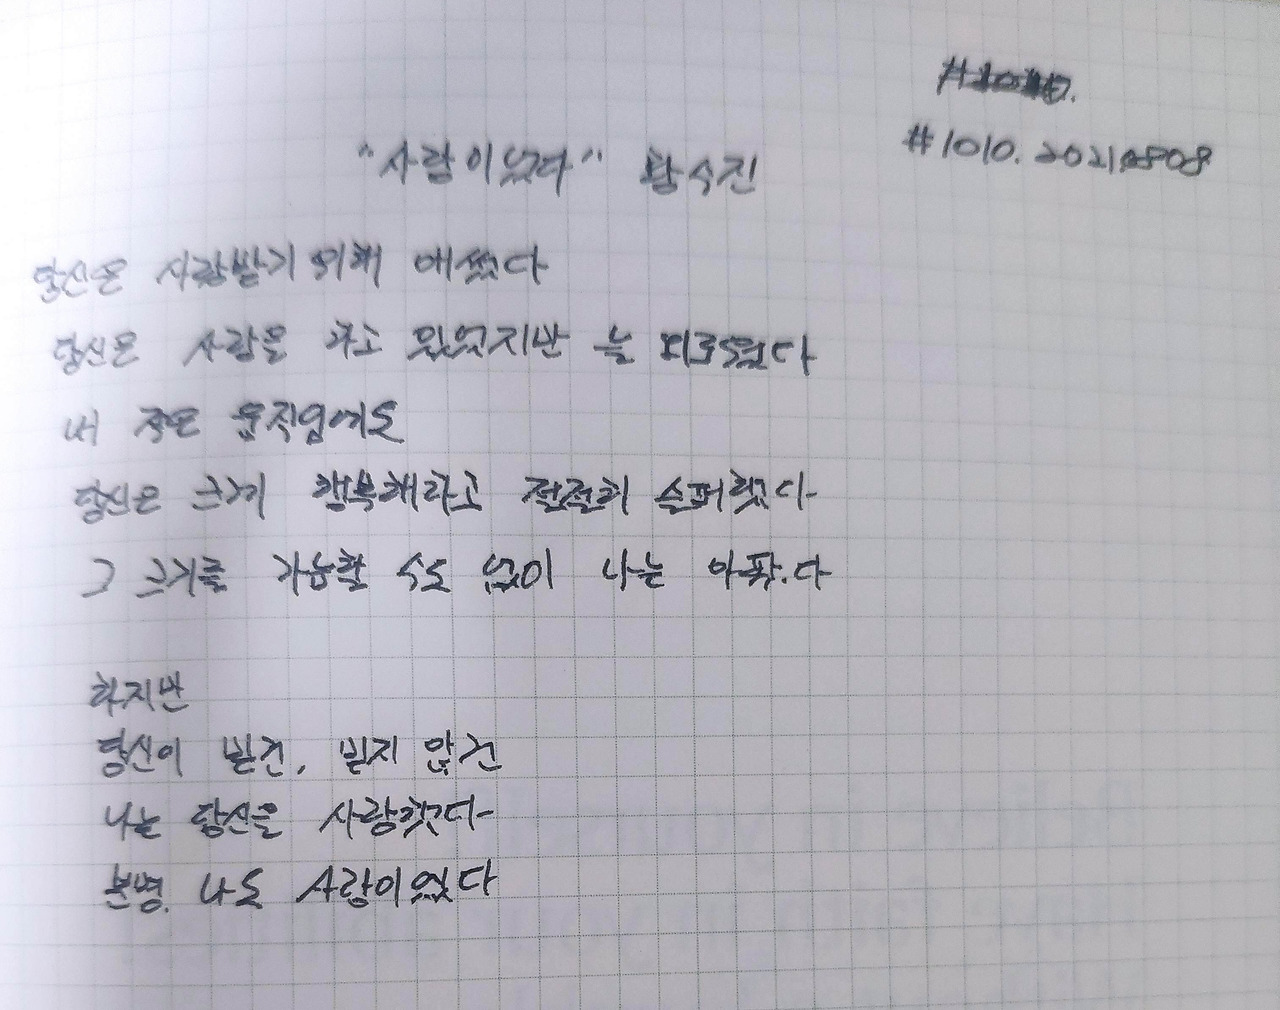 #1010. 20210808
"사랑이었다" 황수진
당신은 사랑받기 위해 애썼다
당신은 사랑을 하고 있었지만 늘 외로웠다
내 작은 움직임에도
당신은 크게 행복해하고 처절히 슬퍼했다
그 크기를 가늠할 수도 없이 나는 아팠다
하지만
당신이 믿건, 믿지 않건
나는 당신을 사랑했다
분명 나도 사랑이었다